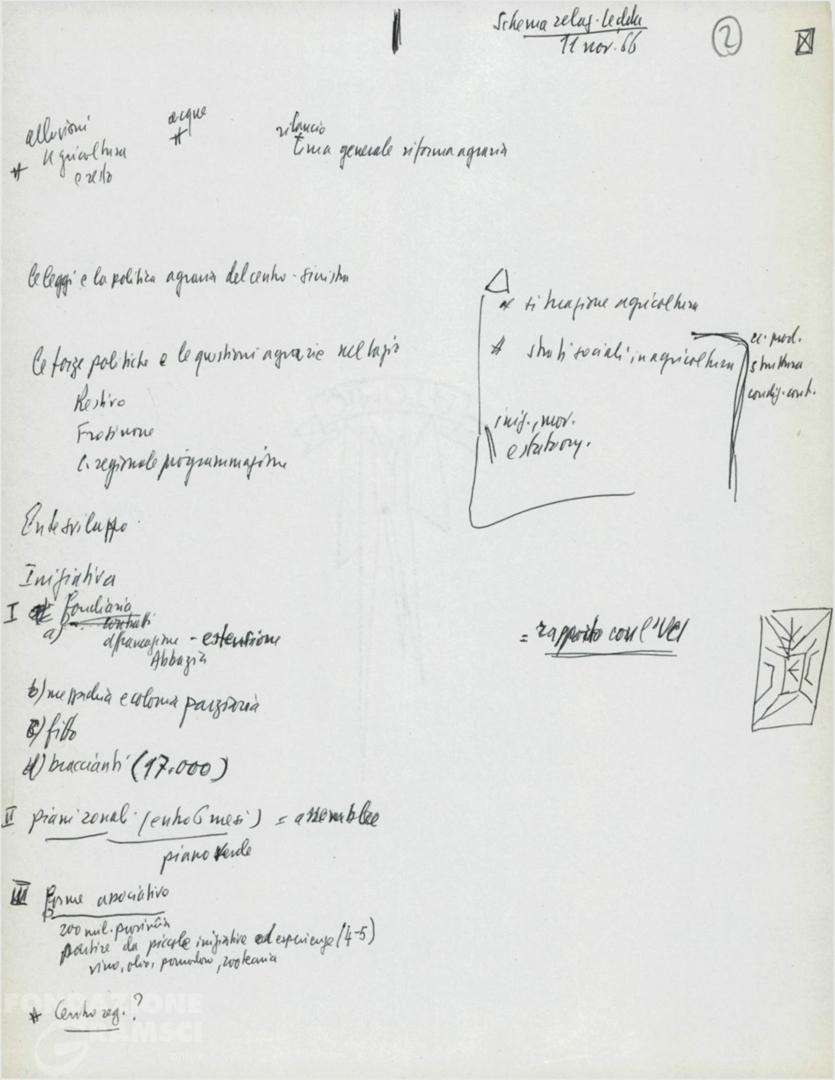 Schema relaz. Ledda
11 nov. 66
2
alluvioni
# agricoltura
e resto
acque
#
rilancio
tema generale riforma agraria
le leggi e la politica agraria del centro-sinistra
le forze politiche e le questioni agrarie nel Lazio
Restivo
Frosinone
C. regionale programmazione
situazione agricoltura
# strati sociali in agricoltura
iniz., mov.
ec. mod.
struttura
condiz. cont.
Ente sviluppo
Iniziativa
I Fondiaria
a) contratti
affrancazione - estensione
Abbazia
b) mezzadria e colonia parziaria
c) fitto
d) braccianti (17.000)
= rapporto con l'UCI
II piani zonali (entro 6 mesi) = assemblee
piano verde
III Forme associative
200 mil. provincia
partire da piccole iniziative ed esperienze (4-5)
vino, olio, pomodoro, zootecnia
# Centro reg.?
FONDAZIONE
GRAMSCI